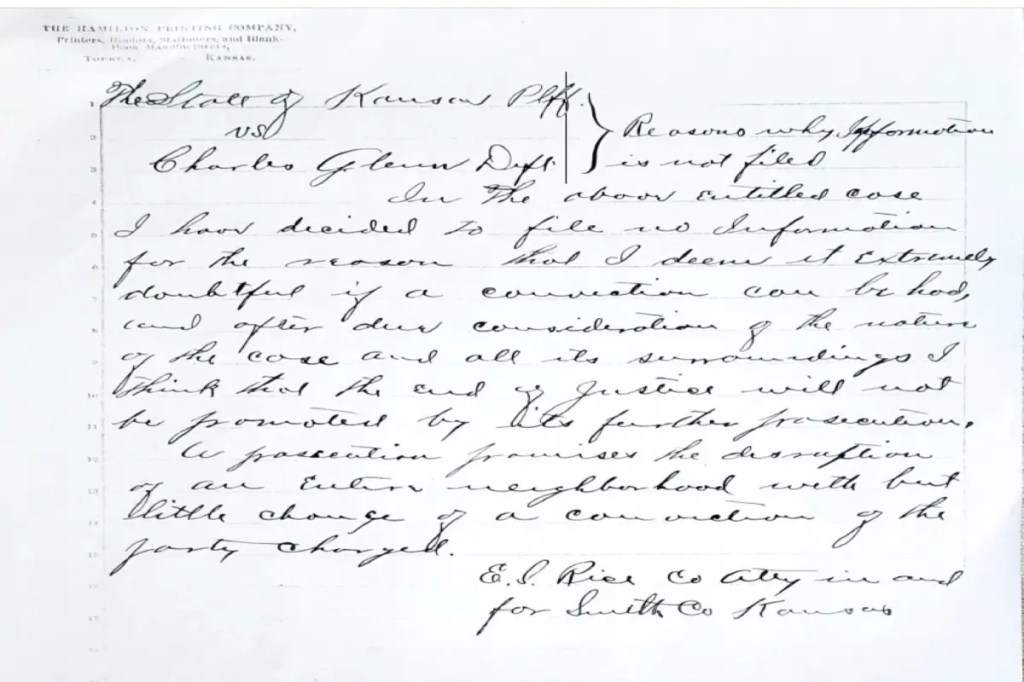 THE HAMILTON PRINTING COMPANY,
Printers, Binders, Stationers, and Blank-
Book Manufacturers,
TOPEKA, KANSAS.
1 The State of Kansas Plff.
2 vs
Reasons why Information
3 Charles Glenn Deft.
is not filed
4 In the above entitled case
5 I have decided to file no Information
6 for the reason that I deem it extremely
7 doubtful if a conviction can be had,
8 and after due consideration of the nature
9 of the case and all its surroundings I
10 think that the end of Justice will not
11 be promoted by its further prosecution.
12 A prosecution promises the disruption
13 of an entire neighborhood with but
14 little change of a conviction of the
15 party charged.
16 E. S. Rice Co Atty in and
17 for Smith Co Kansas